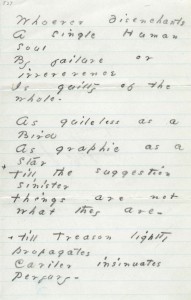 Whoever Disenchants
A single Human
Soul
By failure or
irreverence
Is guilty of the
whole.
As guileless as a
Bird
As graphic as a
Star
+
Till the suggestion
sinister
Things are not
what they are.
+ till Treason lightly
propagates
Caviler insinuates
Perjury.